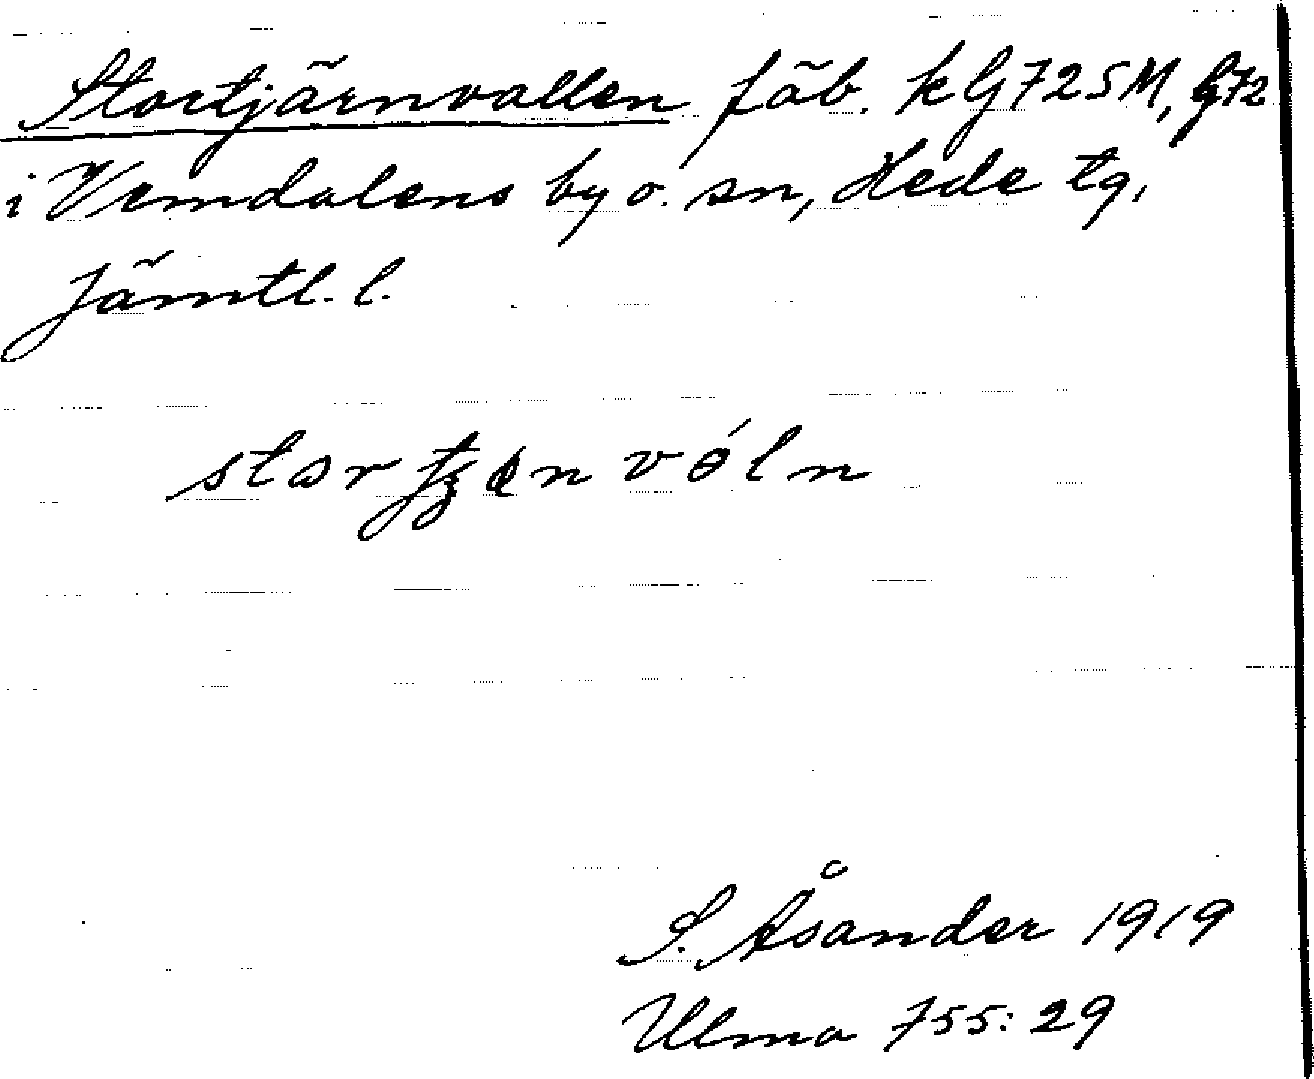 Stortjärnvallen fäb. k G725M, G72
i Vemdalens by o. sn, Hede tg,
Jämtl. l.
vóln
S. Åsander 1919
Ulma 755:29